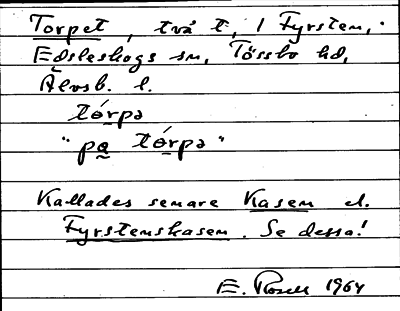 Torpet, två t, / Fyrstem,
Edsleskogs sn, Tössbo hd,
Älvsb. l.
tórpə
"pa tórpə"
Kallades senare Kasem el.
Fyrstenskasem. Se dessa!
E. Rosell 1964